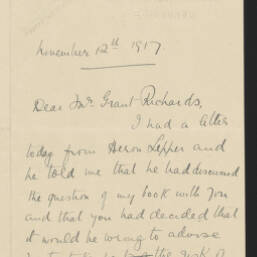 November 12th 1917.
Dear Mr Grant Richards,
I had a letter
today from Heron Lepper and
he told me that he had discussed
the question of my book with you
and that you had decided that
it would be wrong to advise
the risk of